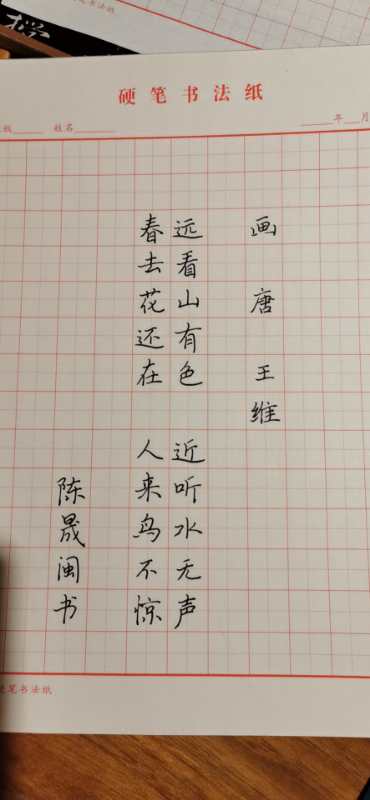 硬笔书法纸
姓名 年 月
画 唐 王维
远看山有色 近听水无声
春去花还在 人来鸟不惊
陈晟闽书
笔书法纸